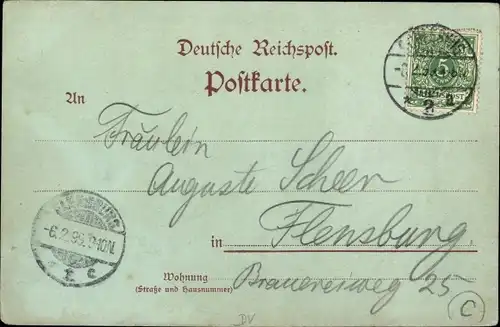 Deutsche Reichspost.
Postkarte.
5
2 a
An
Fräulein
Auguste Scheer
-6.2.99. 9-10N.
* c
in Flensburg
Wohnung
(Straße und Hausnummer)
Brauereiweg 25
C
DV